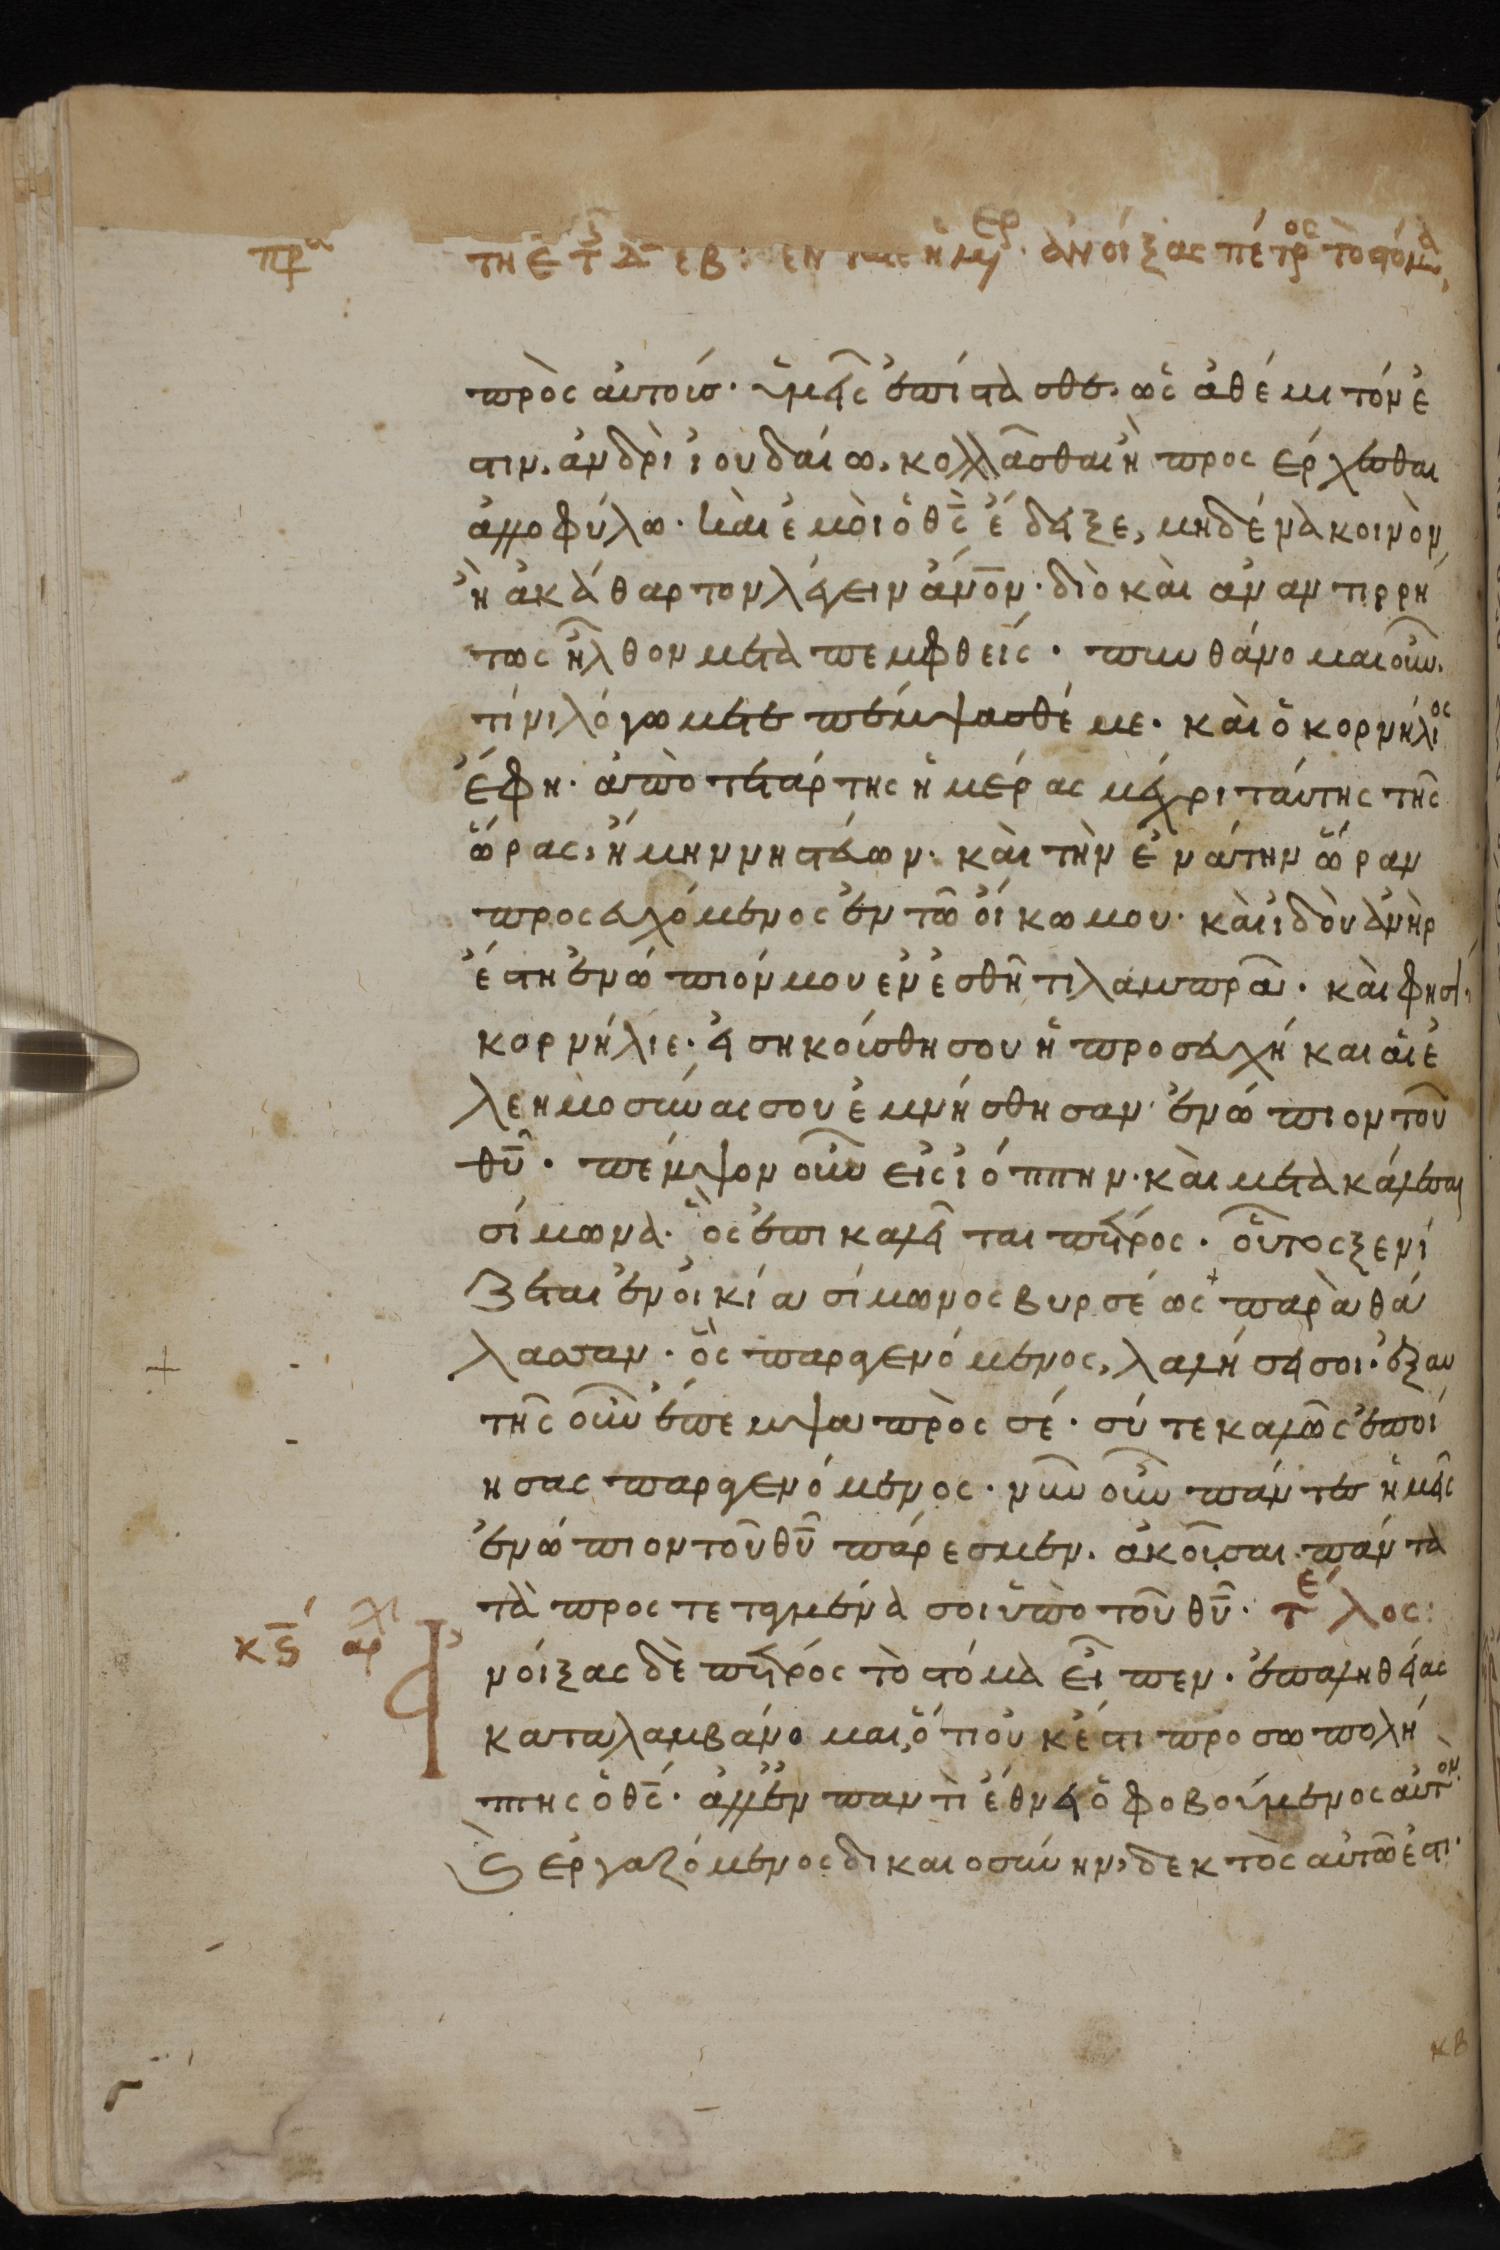 πρα τη ε τ Δ εβ: εν ταις ημερ. ἀνοίξας πέτρος τὸ στόμα,
πρὸς αὐτούσ· ὑμεῖς ἐπίστασθε. ὡς ἀθέμιτόν ἐ
στιν. ἀνδρὶ ἰουδαίω, κολλᾶσθαι ἢ προσέρχεσθαι
ἀλλοφύλω· καὶ ἐμοὶ ὁ θς ἔδειξε, μηδένα κοινὸν
ἢ ἀκάθαρτον λέγειν ἄνον· διὸ καὶ ἀναντιρρή
τως ἦλθον μεταπεμφθείς· πυνθάνομαι οὖν.
τίνι λόγω μετεπέμψασθέ με· καὶ ὁ κορνήλιος
ἔφη· ἀπὸ τετάρτης ἡμέρας μέχρι ταύτης τῆς
ὥρας, ἤμην νηστεύων· καὶ τὴν ἐνάτην ὥραν
προσευχόμενος ἐν τῶ οἴκω μου· καὶ ἰδοὺ ἀνὴρ
ἔστη ἐνώπιόν μου ἐν ἐσθῆτι λαμπρᾶ· καὶ φησί,
κορνήλιε· εἰσηκούσθη σου ἡ προσευχή καὶ αἱ ἐ
λεημοσύναι σου ἐμνήσθησαν ἐνώπιον τοῦ
θῦ· πέμψον οὖν εἰς ἰόππην· καὶ μετακάλεσαι
σίμωνα· ὃς ἐπικαλεῖται πέτρος· οὗτος ξενί
ζεται ἐν οἰκία σίμωνος βυρσέως παρὰ θά
λασσαν· ὃς παραγενόμενος, λαλήσει σοι· ἐξαυ
τῆς οὖν ἔπεμψα πρὸς σέ· σύ τε καλῶς ἐποί
ησας παραγενόμενος· νῦν οὖν πάντες ἡμεῖς
ἐνώπιον τοῦ θῦ πάρεσμεν. ἀκοῦσαι πάντα
τὰ προστεταγμένα σοι ὑπὸ τοῦ θῦ· τέλος:
κϛ αρχ Ἀ
νοίξας δὲ πέτρος τὸ στόμα εἶπεν· ἐπαληθείας
καταλαμβάνομαι, ὅτι οὐκ ἔστι προσωπολή
πτης ὁ θς· ἀλλ' ἐν παντὶ ἔθνει ὁ φοβούμενος αὐτὸν
ϛ ἐργαζόμενος δικαιοσύνην, δεκτὸς αὐτῶ ἐστι·
κβ